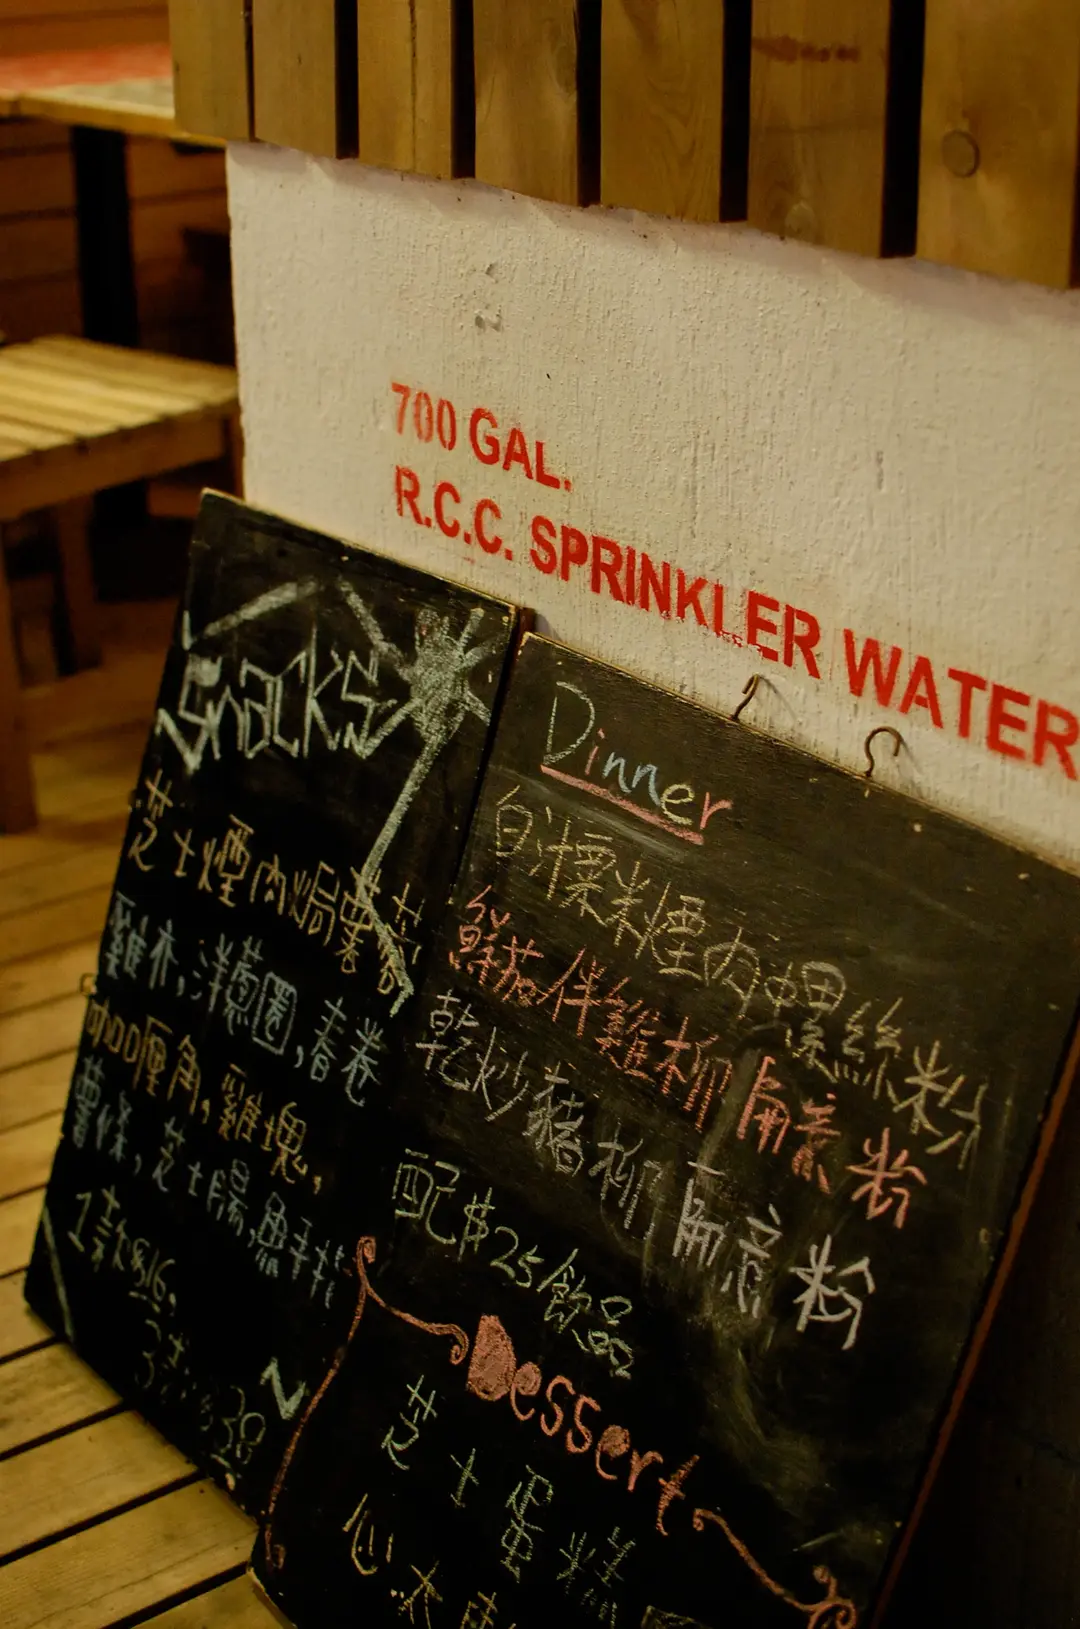 700 GAL.
R.C.C. SPRINKLER WATER
Snacks
芝士煙肉焗薯蓉
雞木,洋蔥圈,春卷
咖喱角,雞塊,
薯條,芝士腸,魚手指
1款$16,
3款$38
Dinner
白汁粟米煙肉螺絲粉
鮮茄伴雞柳扁意粉
乾炒豬柳扁意粉
配$25飲品
Dessert
芝士蛋糕
心太